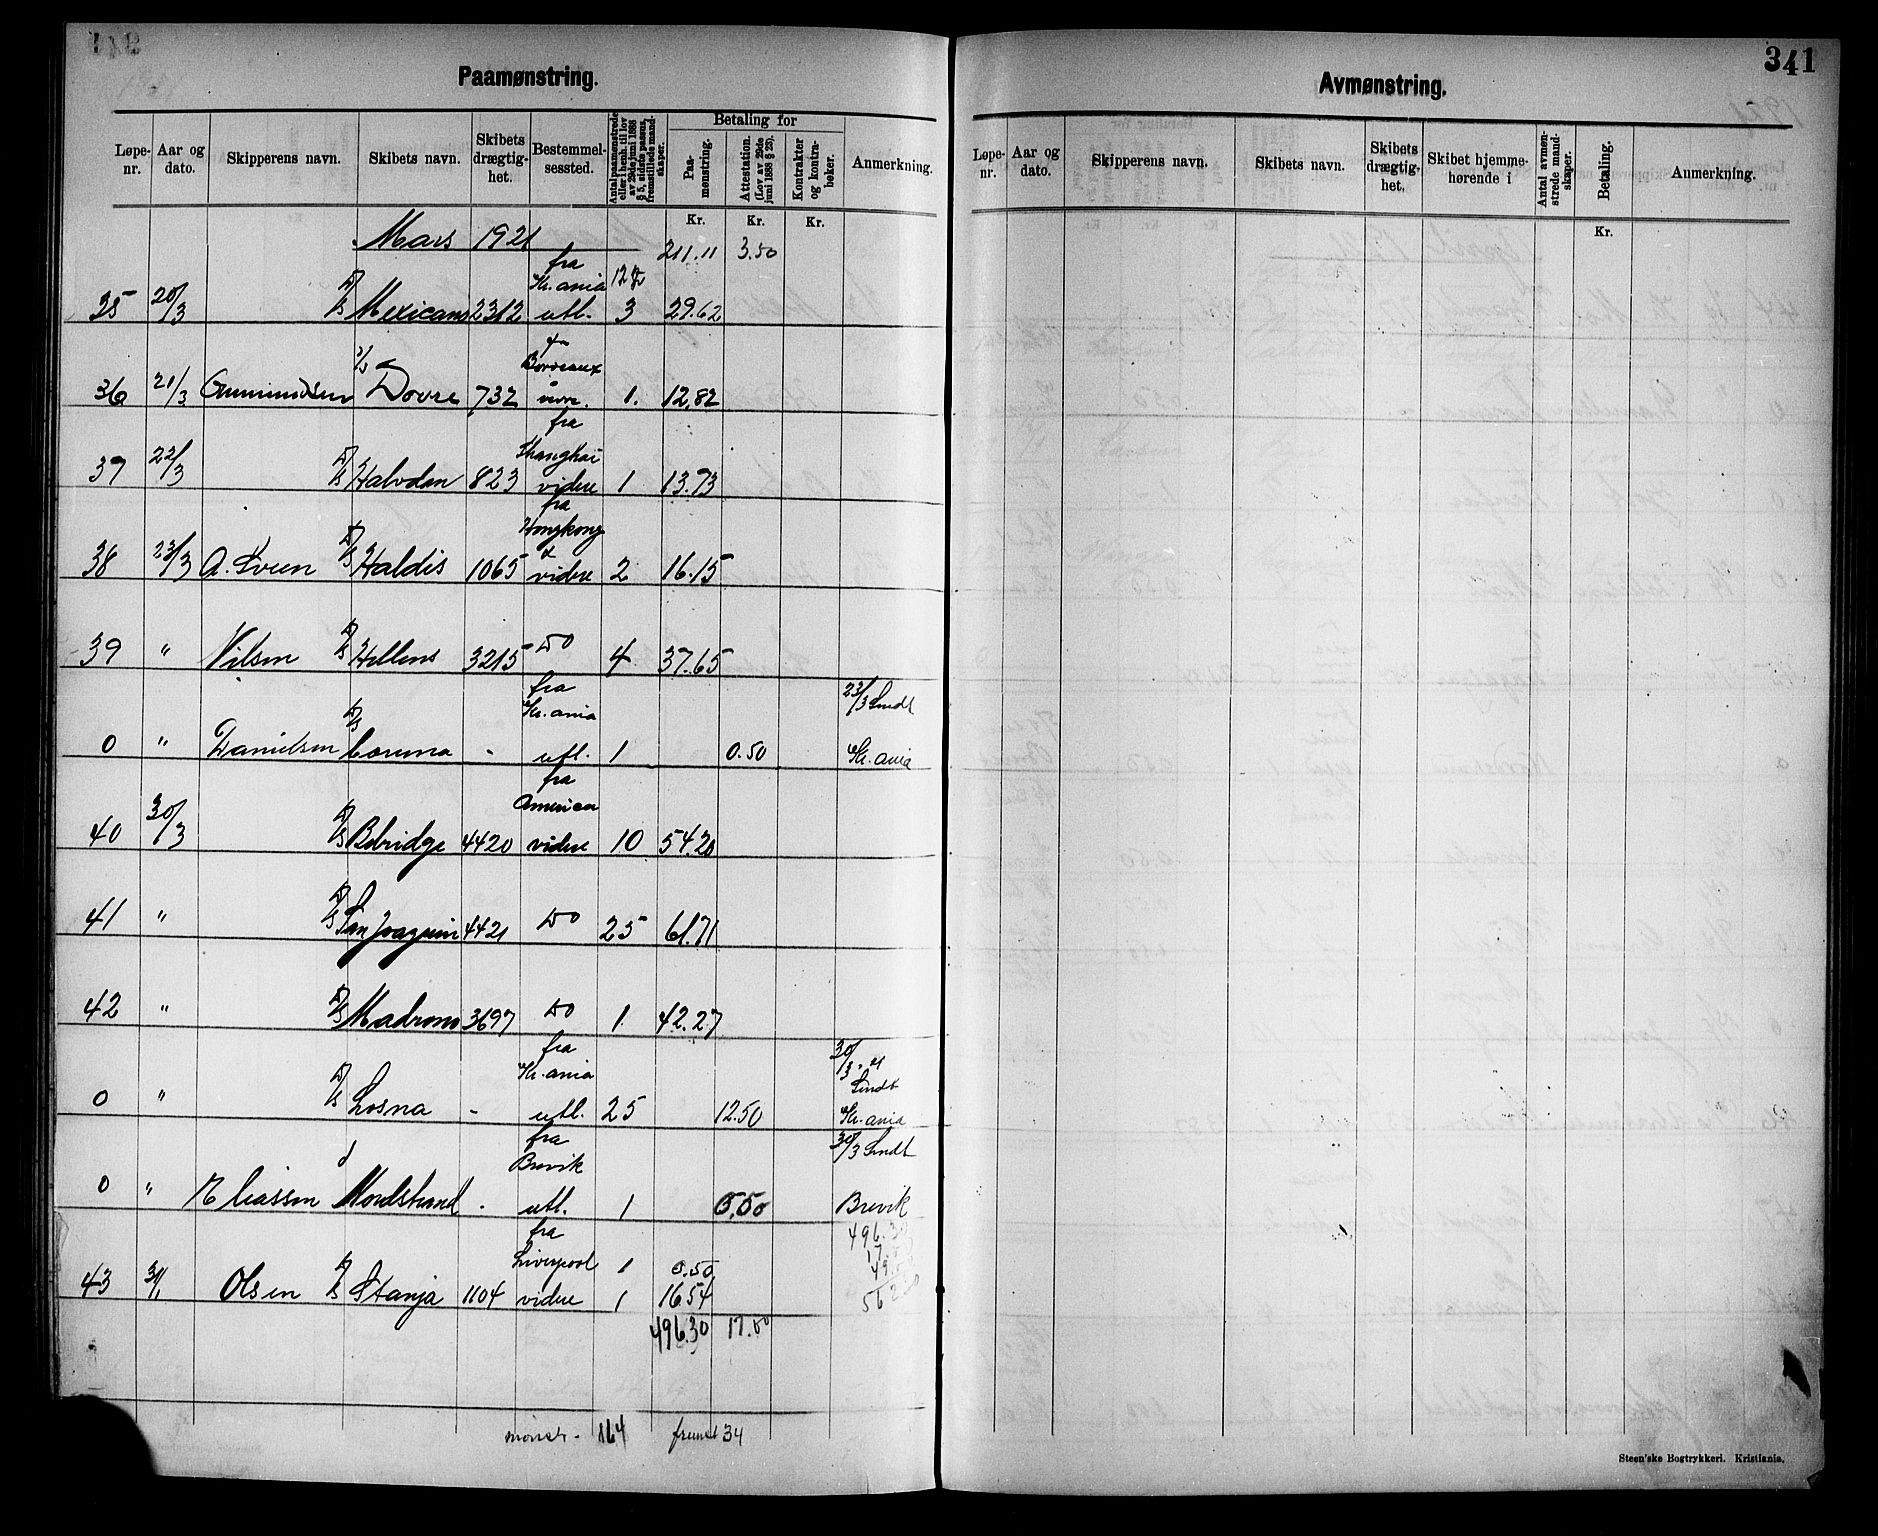 341
Paamønstring.
Løpe-nr.
Aar og dato.
Skipperens navn.
Skibets navn.
Skibets drægtig-het.
Bestemmel-sessted.
Antal paamønstrede eller i henh. til lov av 29de juni 1888 § 5, sidste passus, fremstillede mand-skaper.
Betaling for
Paa-mønstring.
Attestation. (Lov av 29de juni 1888 § 25).
Kontrakter og kontra-bøker.
Anmerkning.
Kr. Kr. Kr.
Mars 1921 211.11 3.50
35 20/3 D/S Mexicano 2312 fra Kr.ania utl. 3 29.62
36 21/3 Gummundsen D/S Dovre 732 Bordeaux 1. 12.82
37 22/3 D/S Halvdan 823 fra Shanghai videre 1 13.73
38 23/3 A. Sveen D/S Haldis 1065 fra Hongkong & videre 2 16.15
39 " Nilsen D/S Hellens 3215 Do 4 37.65
0 " Danielsen D/S Corona - fra Kr.ania utl. 1 0.50 23/3 Sendt Kr.ania
40 30/3 D/S Bebridge 4420 fra America videre 10 54.20
41 " D/S San Joaquin 4421 Do 25 61.71
42 " D/S Madrono 3697 Do 1 42.27
0 " D/S Losna - fra Kr.ania utl. 25 12.50 30/3 21 Sendt Kr.ania
0 " Eliassen Nordstrand - fra Brevik utl. 1 0.50 30/3 Sendt Brevik
43 Olsen D/S Stanja 1104 fra Liverpool videre 1 0.50
1 16.54
496.30 17.00
496.30
mønstr. 164 fremst 34
Avmønstring.
Løpe-nr.
Aar og dato.
Skipperens navn.
Skibets navn.
Skibets drægtig-het.
Skibet hjemme-hørende i
Antal avmøn-strede mand-skaper.
Betaling.
Anmerkning.
Kr.
Steen'ske Bogtrykkeri. Kristiania.